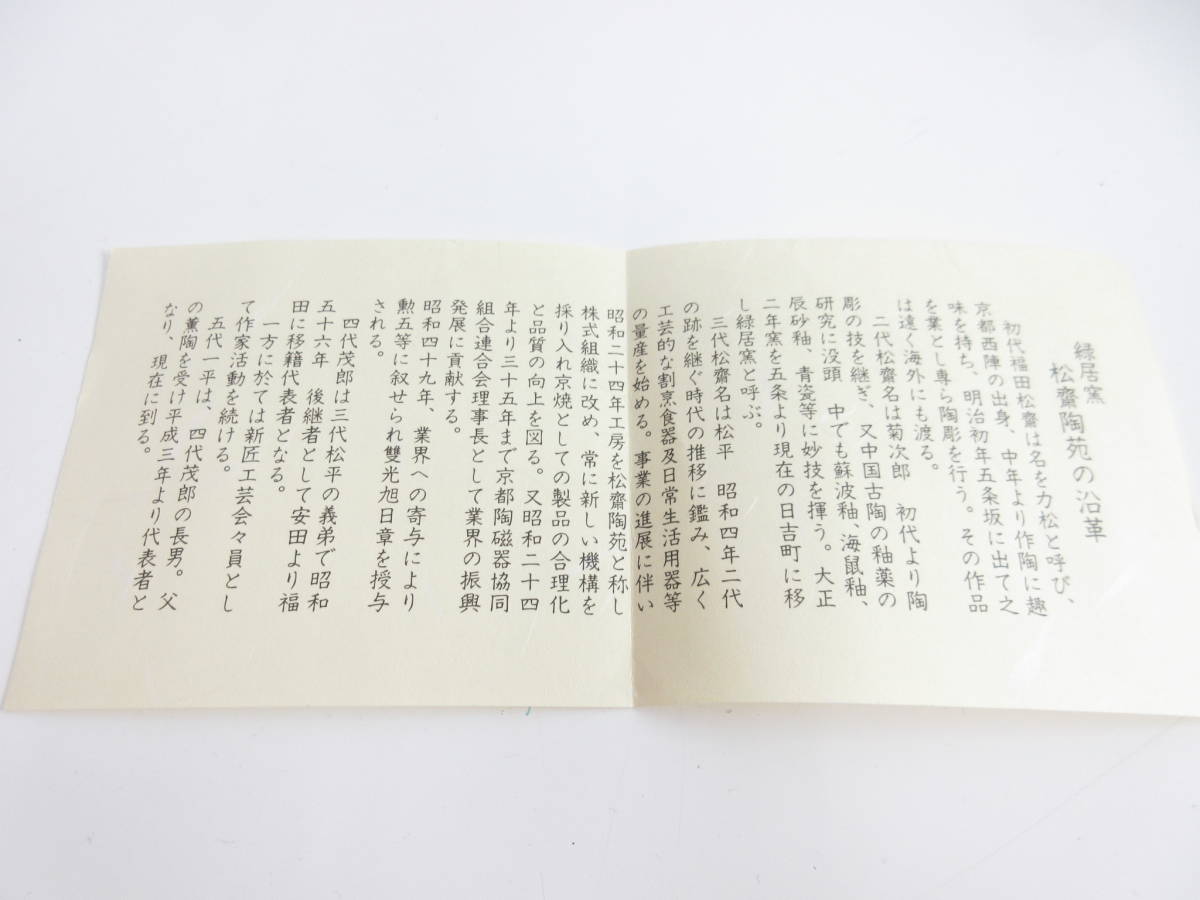 緑居窯
松齋陶苑の沿革
初代福田松齋は名を力松と呼び、
京都西陣の出身、中年より作陶に趣
味を持ち、明治初年五条坂に出て之
を業とし専ら陶彫を行う。その作品
は遠く海外にも渡る。
二代松齋名は菊次郎　初代より陶
彫の技を継ぎ、又中国古陶の釉薬の
研究に没頭　中でも蘇波釉、海鼠釉、
辰砂釉、青瓷等に妙技を揮う。大正
二年窯を五条より現在の日吉町に移
し緑居窯と呼ぶ。
三代松齋名は松平　昭和四年二代
の跡を継ぐ時代の推移に鑑み、広く
工芸的な割烹食器及日常生活用器等
の量産を始める。事業の進展に伴い
昭和二十四年工房を松齋陶苑と称し
株式組織に改め、常に新しい機構を
採り入れ京焼としての製品の合理化
と品質の向上を図る。又昭和二十四
年より三十五年まで京都陶磁器協同
組合連合会理事長として業界の振興
発展に貢献する。
昭和四十九年、業界への寄与により
勲五等に叙せられ雙光旭日章を授与
される。
四代茂郎は三代松平の義弟で昭和
五十六年　後継者として安田より福
田に移籍代表者となる。
一方に於ては新匠工芸会々員とし
て作家活動を続ける。
五代一平は、四代茂郎の長男。父
の薫陶を受け平成三年より代表者と
なり、現在に到る。